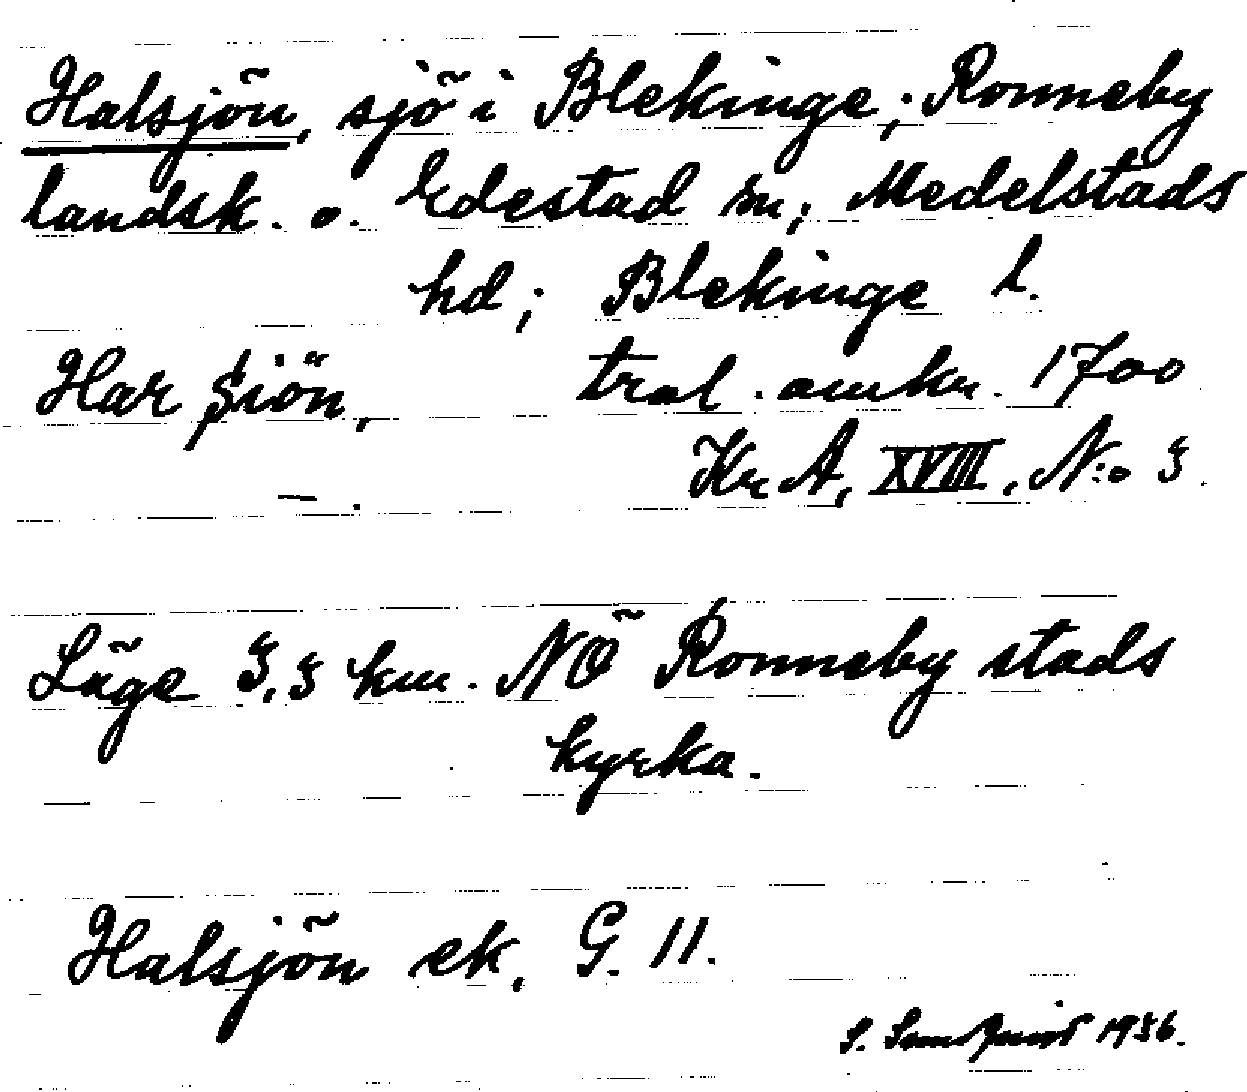 Halsjön, sjö i Blekinge; Ronneby
landsk. o. Edestad sn; Medelstads
hd; Blekinge l.
Har Siön, trol. omkr. 1700
Kr A, XVIII, N:o 3.
—.
Läge 3,3 km. NÖ Ronneby stads
kyrka.
Halsjön ek. G. 11.
S. 1936.